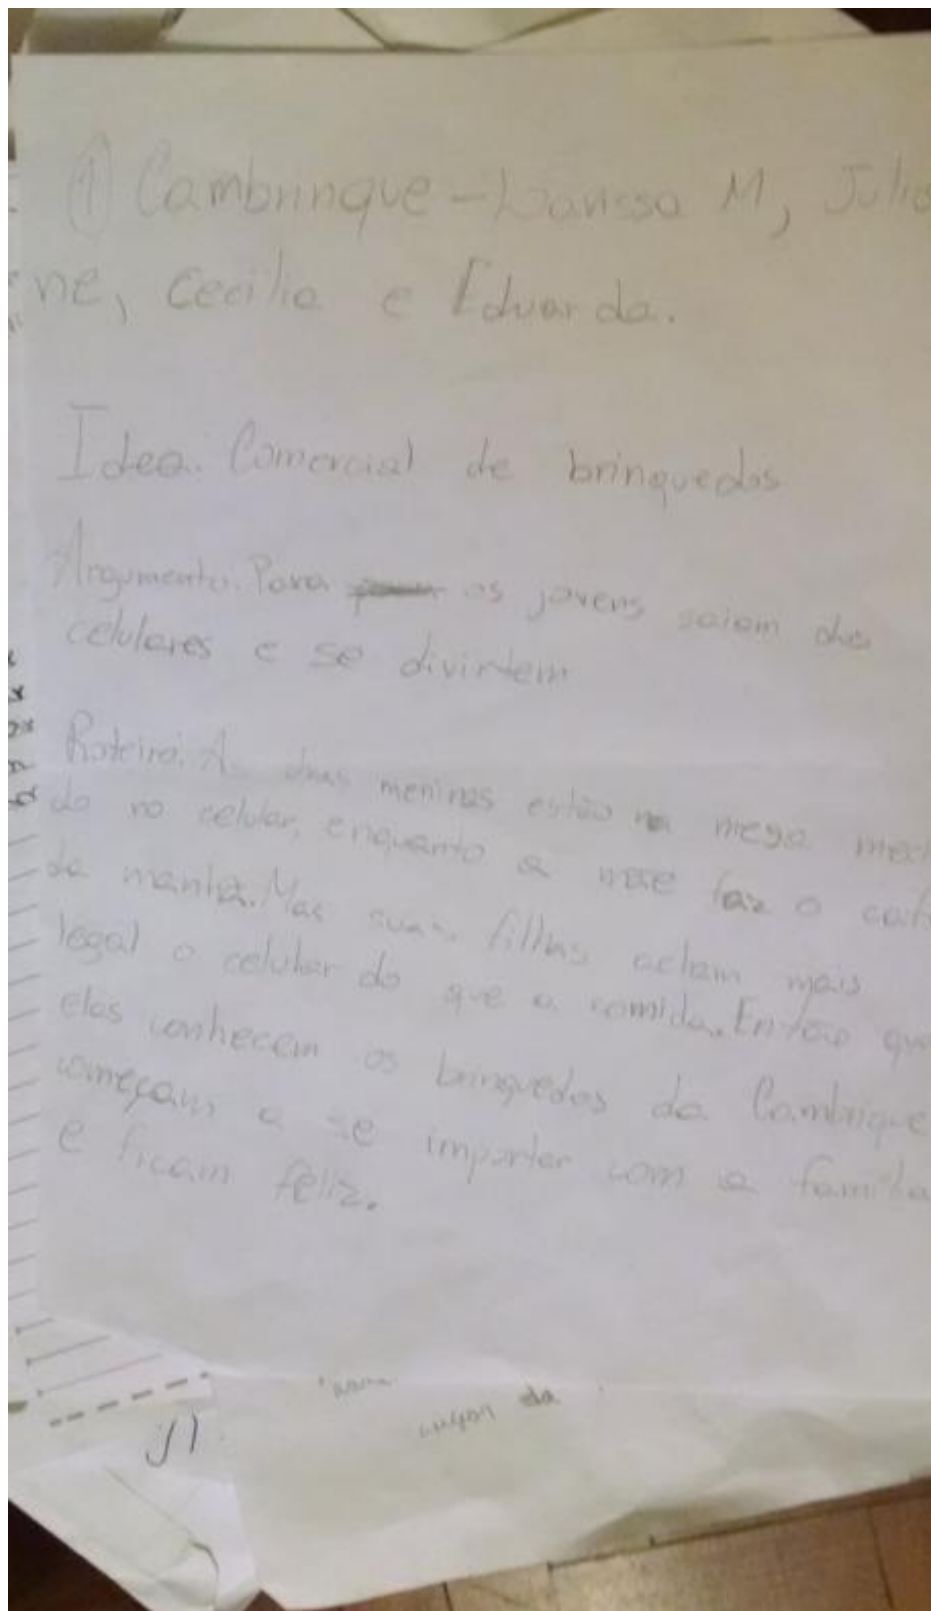 ① Cambrinque - Larissa M, Julia
ne, Cecilia e Eduarda.
Idea. Comercial de brinquedos
Argumento. Para os jovens saiam dos
celulares e se divirtem
Roteiro. As duas meninas estão na mesa mex
do no celular, enquanto a mãe faz o caf
da manhã. Mas suas filhas acham mais
legal o celular do que a comida. Então qu
elas conhecem os brinquedos da Cambrique
começam a se importar com a familia
e ficam feliz.
da